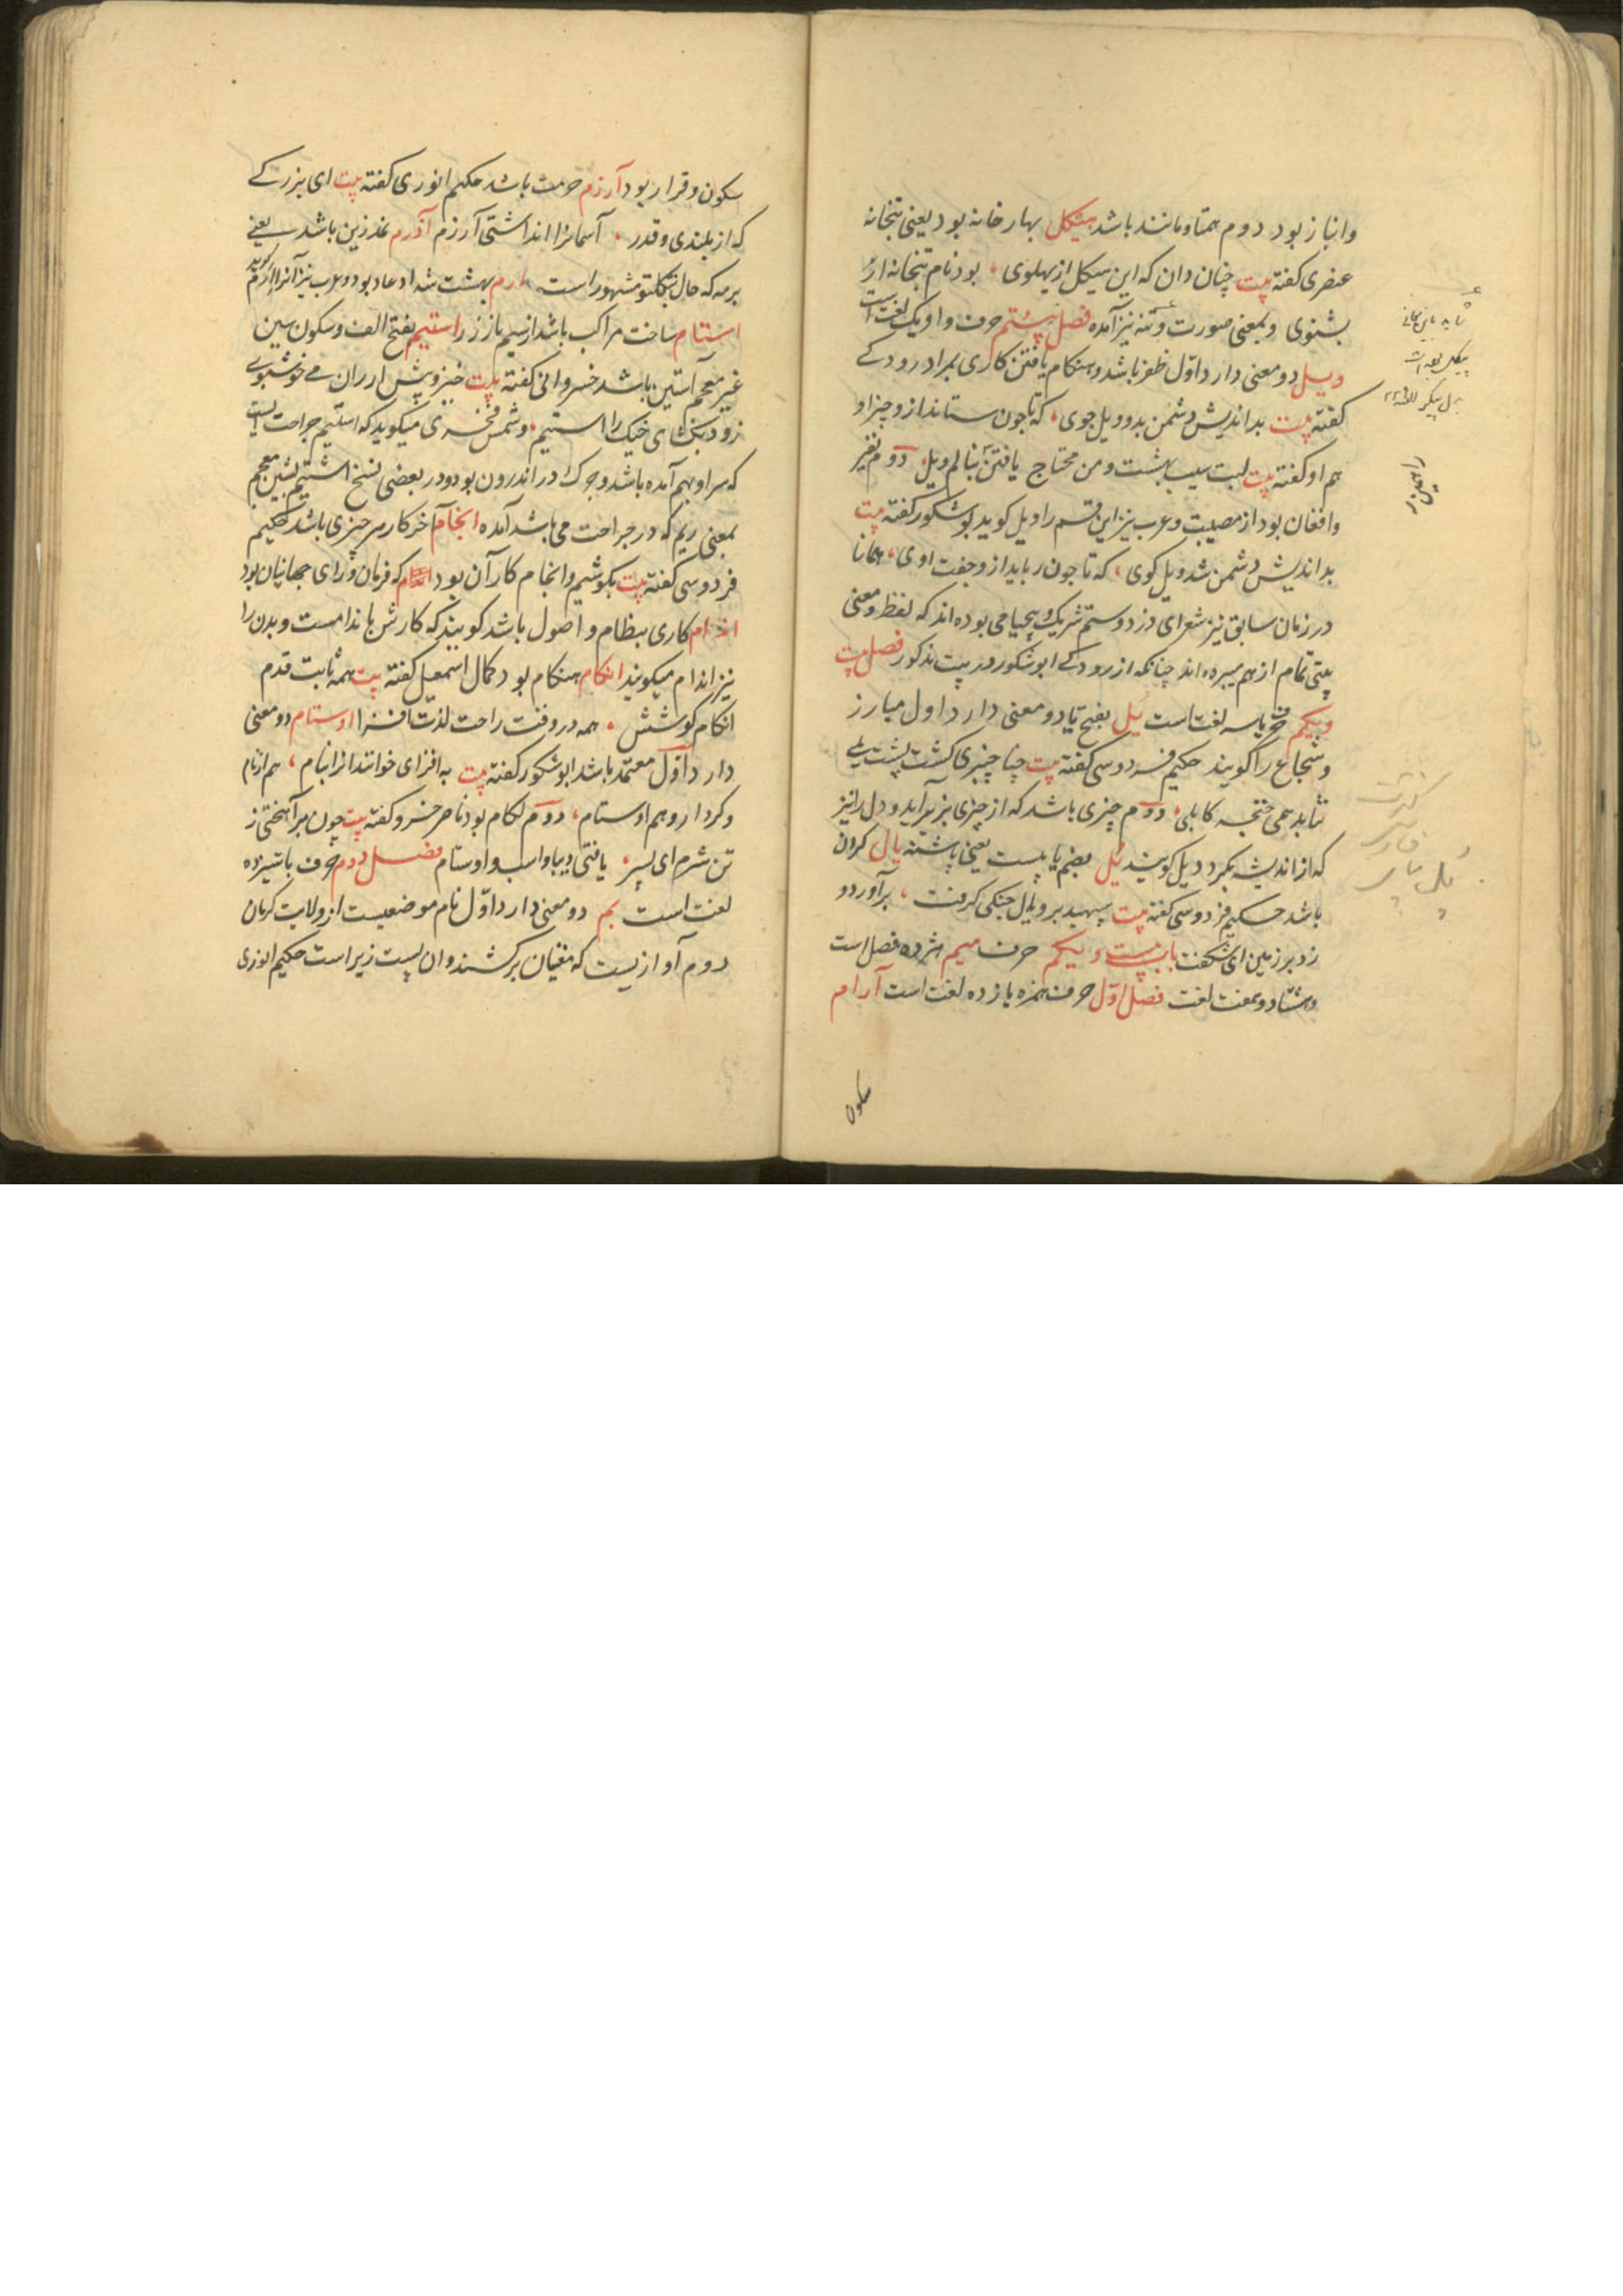 وانباز بود دوم همتا و مانند باشد هیکل بهار خانه بود یعنی بتخانه
عنصری کفته بیت چنان دان که این هیکل از پهلوی ، بود نام بتخانه ار
بشنوی و بمعنی صورت و تنه نیز آمده فصل بیستم حرف واو یک لغت است
ویل دو معنی دارد اوّل ظفر باشد و هنکام یافتن کاری بمراد رودکے
کفته بیت بداندیش دشمن بدو ویل جوی ، که تا چون ستاند ازو چیز او
هم او کفته بیت لبت سیب بهشت و من محتاج یافتن نیابم ویل دوم نفیر
وافغان بود از مصیبت و عرب نیز این قسم را ویل کوید بو شکور کفته بیت
بداندیش دشمن شد ویل کوی ، که تا چون رباید ازو جفت اوی ، همانا
در زمان سابق نیز شعرای دزد و ستم شریک و بیحیا می بوده اند که لفظ و معنی
بیتی تمام از هم میبرده اند چنانکه از رودکے ابو شکور در بیت مذکور فصل بیت
ویکم حرف یا سه لغت است یَل بفتح یا دو معنی دارد اول مبارز
و شجاع را کویند حکیم فردوسی کفته بیت
نتابد همی خنجر کابلی ، دوّم چیزی باشد که از چیزی بزیر آید و دل را نیز
که از اندیشه بکردد یل کویند یُل بضم یا یست یعنی پاشنه یال کردن
باشد حکیم فردوسی کفته بیت سپهبد برو یال جنکی کرفت ، برآورد و
زد بر زمین ای شکفت باب بیست و یکم حرف میم هژده فصل است
و هشتاد و هفت لغت فصل اوّل حرف همزه یازده لغت است آرام
سکون
سکون و قرار بود آرزم حرمت باشد حکیم انوری کفته بیت ای بزرکے
که از بلندی و قدر ، آسمانرا نداشتی آرزم آذرم نمدزین باشد یعنے
مشهور است ارم بهشت شداد عاد بود و عرب نیز آنرا ارم کوید
استام ساخت مراکب باشد از سیم یا از زر استیم بفتح الف و سکون سین
غیر معجم آستین باشد خسروانی کفته بیت خیز و پیش آر زان می خوشبوے
زود بکشای خیک را استیم ، و شمس فخری میکوید که استیم جراحت است
که سر او بهم آمده باشد و چرک در اندرون بود و در بعضی نسخ اشتیم بشین معجم
بمعنی ریم که در جراحت می باشد آمده انجام آخر کار هر چیزی باشد حکیم
فردوسی کفته بیت بکوشیم و انجام کار آن بود که فرمان و رای جهانبان بود
اندام کاری بنظام و اصول باشد کویند که کارش باندامست و بدن را
نیز اندام میکویند انکام هنکام بود کمال اسمعیل کفته بیت همه ثابت قدم
انکام کوشش ، همه در وقت راحت لذت افزا اوستام دو معنی
دارد اوّل معتمد باشد ابو شکور کفته بیت به افزای خوانند او را بنام ، هم از نام
و کردار و هم اوستام ، دوم لکام بود ناصر خسرو کفته بیت چون برآهختی ز
تن شرم ای پسر ، یافتی دیبا و اسب و اوستام فصل دوم حرف با سیزده
لغت است بم دو معنی دارد اوّل نام موضعیست از ولایت کرمان
دوم آوازیست که مغنیان برکشند و آن پست زیر است حکیم انوری